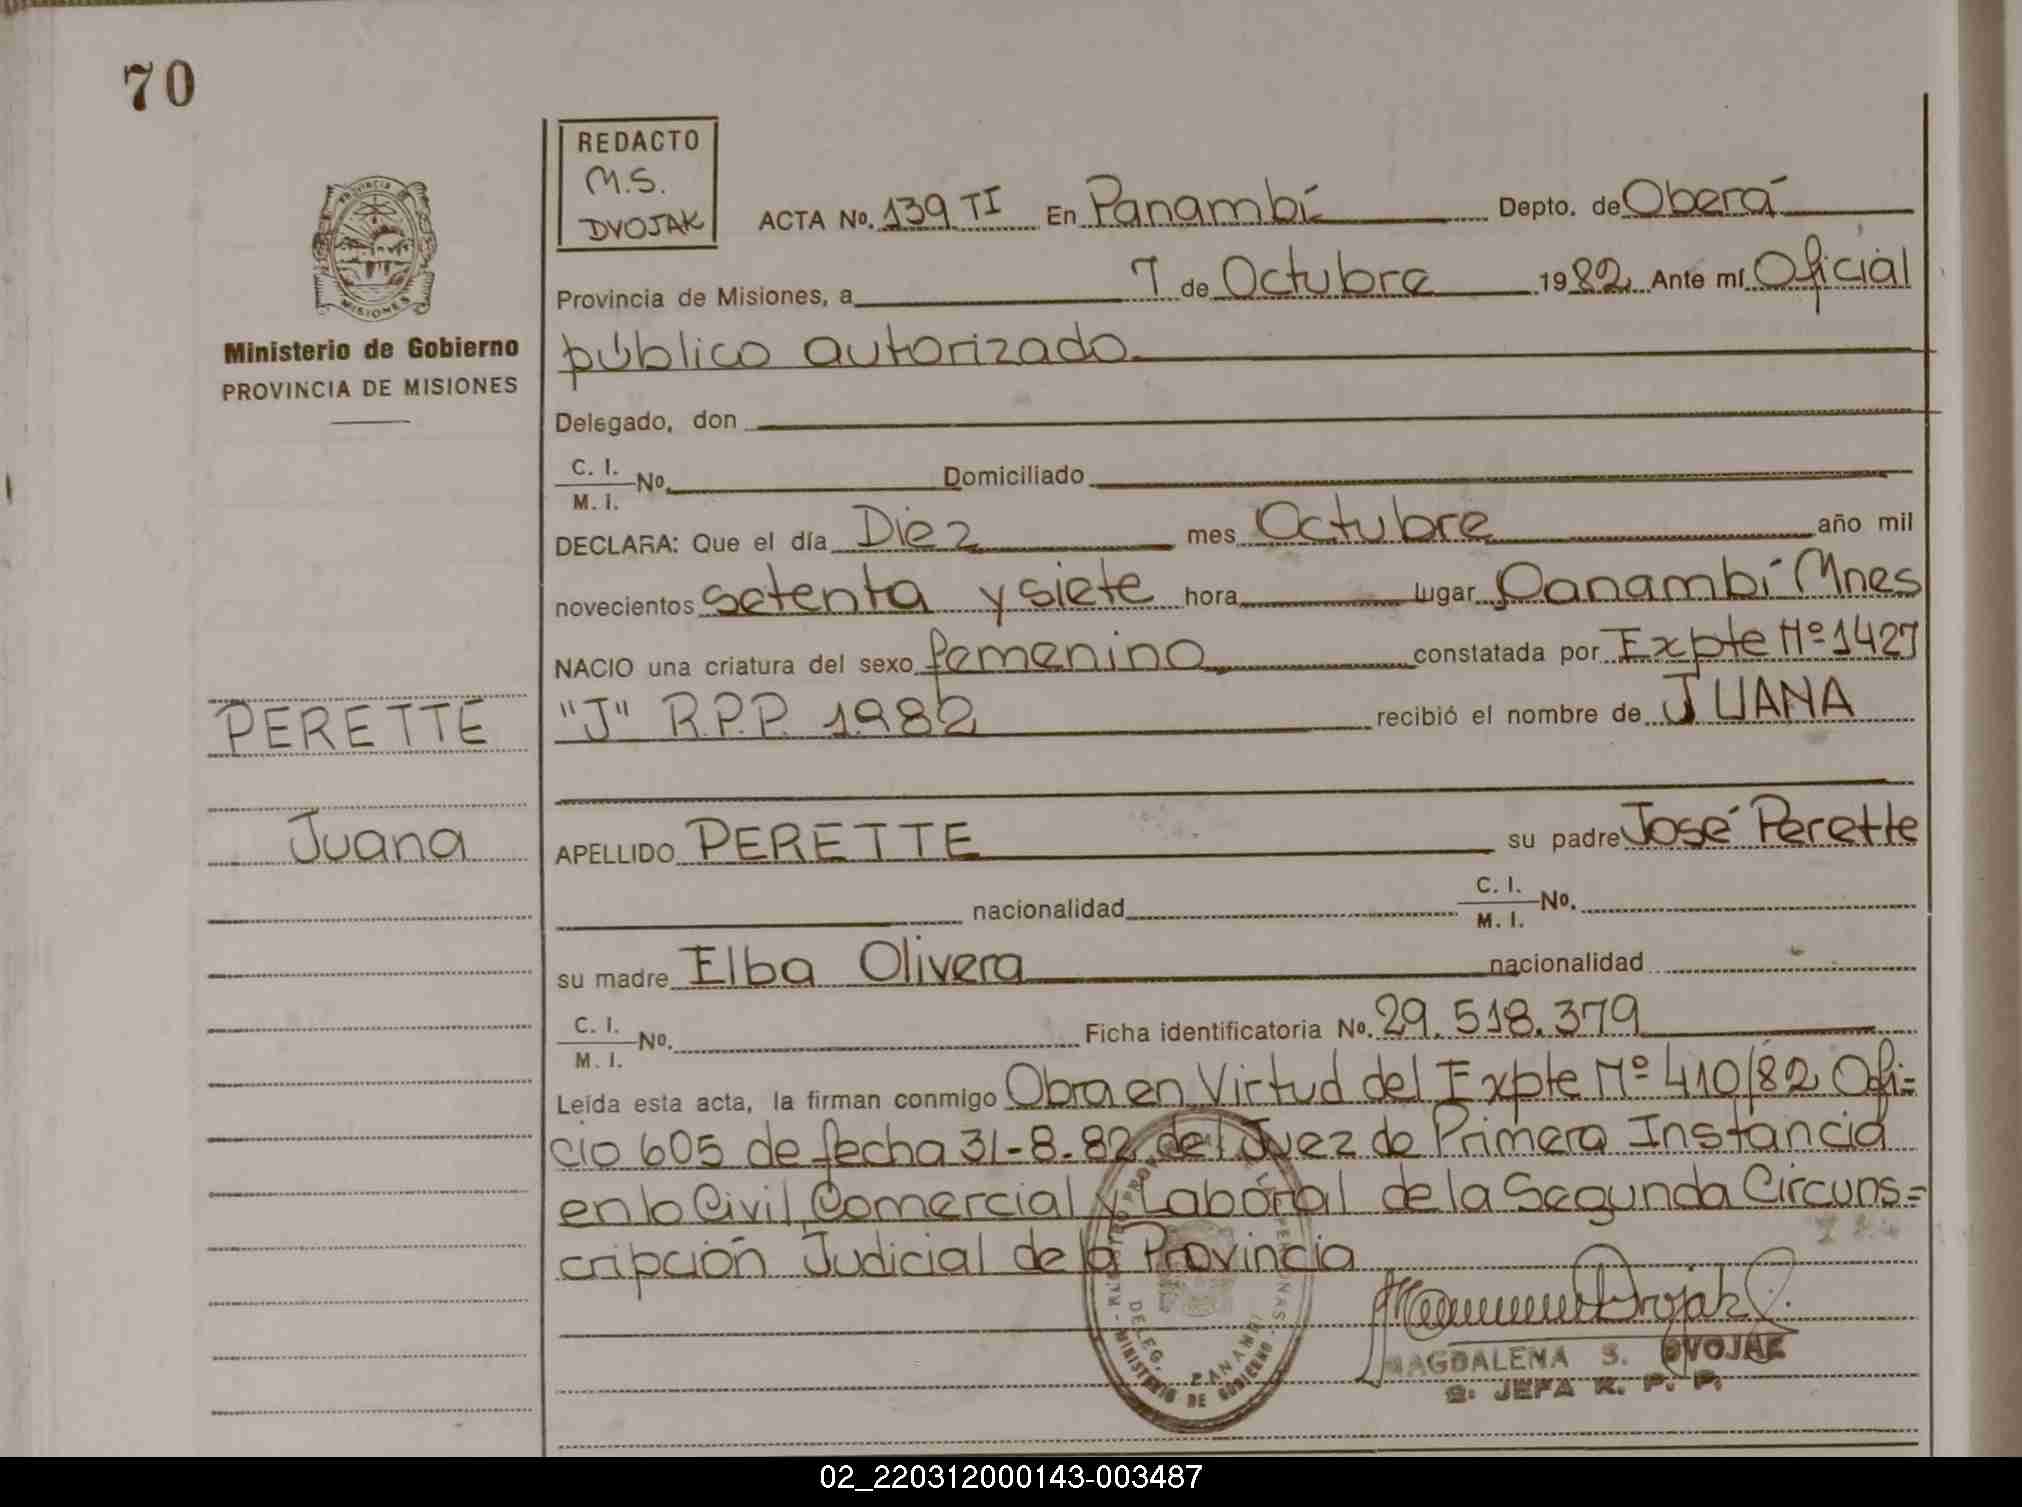 70
REDACTO
M.S.
DVOJAK
PROVINCIA DE
MISIONES
Ministerio de Gobierno
PROVINCIA DE MISIONES
ACTA No. 139 TI En Panambí Depto. de Oberá
Provincia de Misiones, a 7 de Octubre 1982 Ante mí Oficial
público autorizado
Delegado, don
C. I.
M. I. No. Domiciliado
DECLARA: Que el día Diez mes Octubre año mil
novecientos setenta y siete hora lugar Panambí Mnes
NACIO una criatura del sexo femenino constatada por Expte Nº 1427
"J" R.P.P. 1982 recibió el nombre de JUANA
PERETTE
Juana
APELLIDO PERETTE su padre José Perette
nacionalidad C. I.
M. I. No.
su madre Elba Olivera nacionalidad
C. I.
M. I. No. Ficha identificatoria No. 29.518.379
Leída esta acta, la firman conmigo Obra en Virtud del Expte Nº 410/82 Ofi=
cio 605 de fecha 31-8-82 del Juez de Primera Instancia
en lo Civil, Comercial y Laboral de la Segunda Circuns=
cripción Judicial de la Provincia
DELEG. PANAMBI
MINISTERIO DE GOBIERNO
MAGDALENA S. DVOJAK
JEFA R. P. P.
02_220312000143-003487